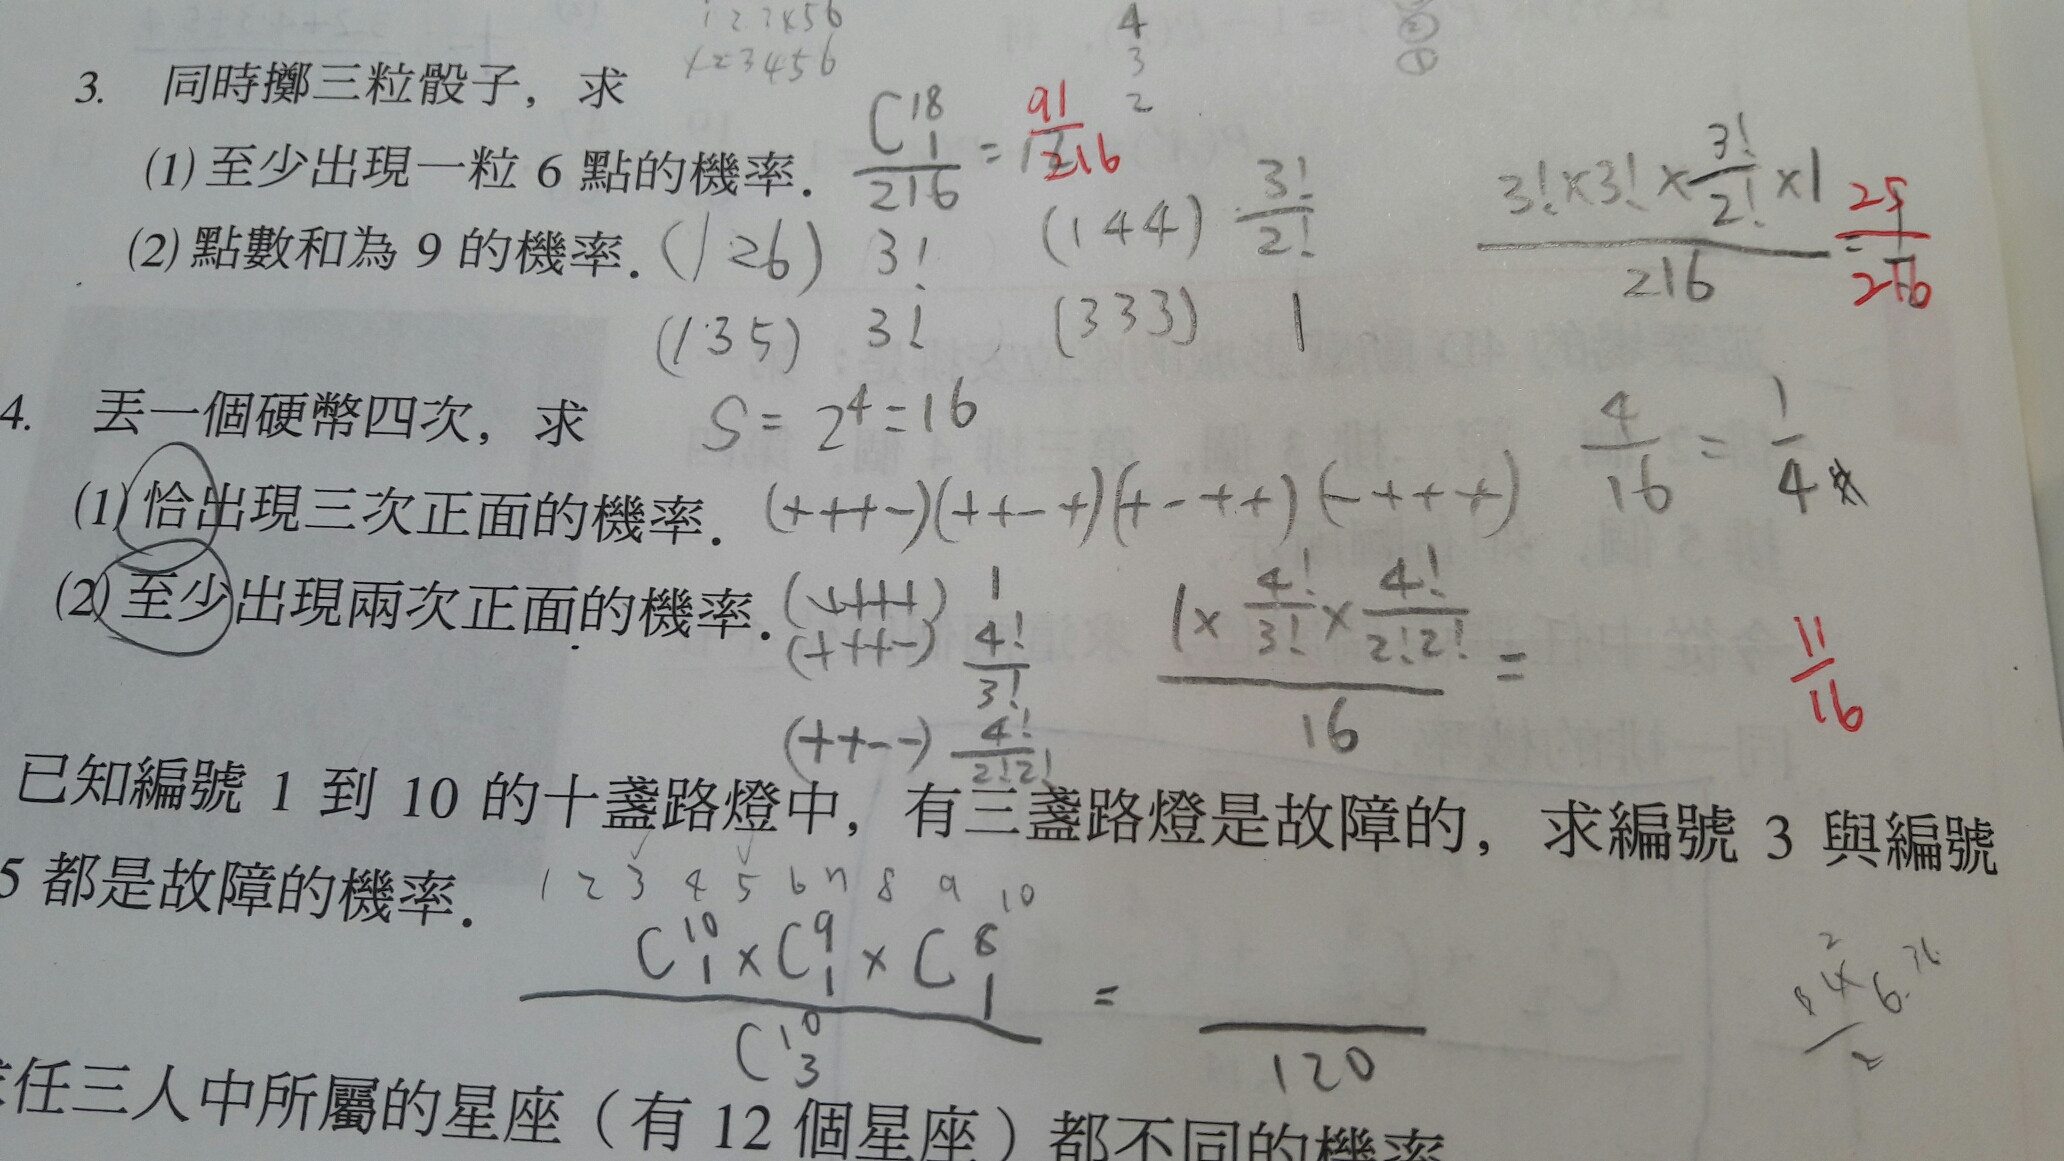 1 2 3 4 5 6
1 2 3 4 5 6
4
3
2
3. 同時擲三粒骰子，求
(1) 至少出現一粒 6 點的機率． C^18_1 / 216 = 91/216
(2) 點數和為 9 的機率． (1 2 6) 3! (1 4 4) 3!/2!
(1 3 5) 3! (3 3 3) 1
3! × 3! × 3!/2! × 1 / 216 = 25/216
4. 丟一個硬幣四次，求 S = 2^4 = 16
(1) 恰出現三次正面的機率． (+++-)(++-+)(+-++)(-+++) 4/16 = 1/4
(2) 至少出現兩次正面的機率． (++++) 1
(+++-) 4!/3!
(++--) 4!/2!2!
1 × 4!/3! × 4!/2!2! / 16 = 11/16
已知編號 1 到 10 的十盞路燈中，有三盞路燈是故障的，求編號 3 與編號
5 都是故障的機率．
1 2 3 4 5 6 7 8 9 10
C^10_1 × C^9_1 × C^8_1 / C^10_3 = /120
任三人中所屬的星座（有 12 個星座）都不同的機率